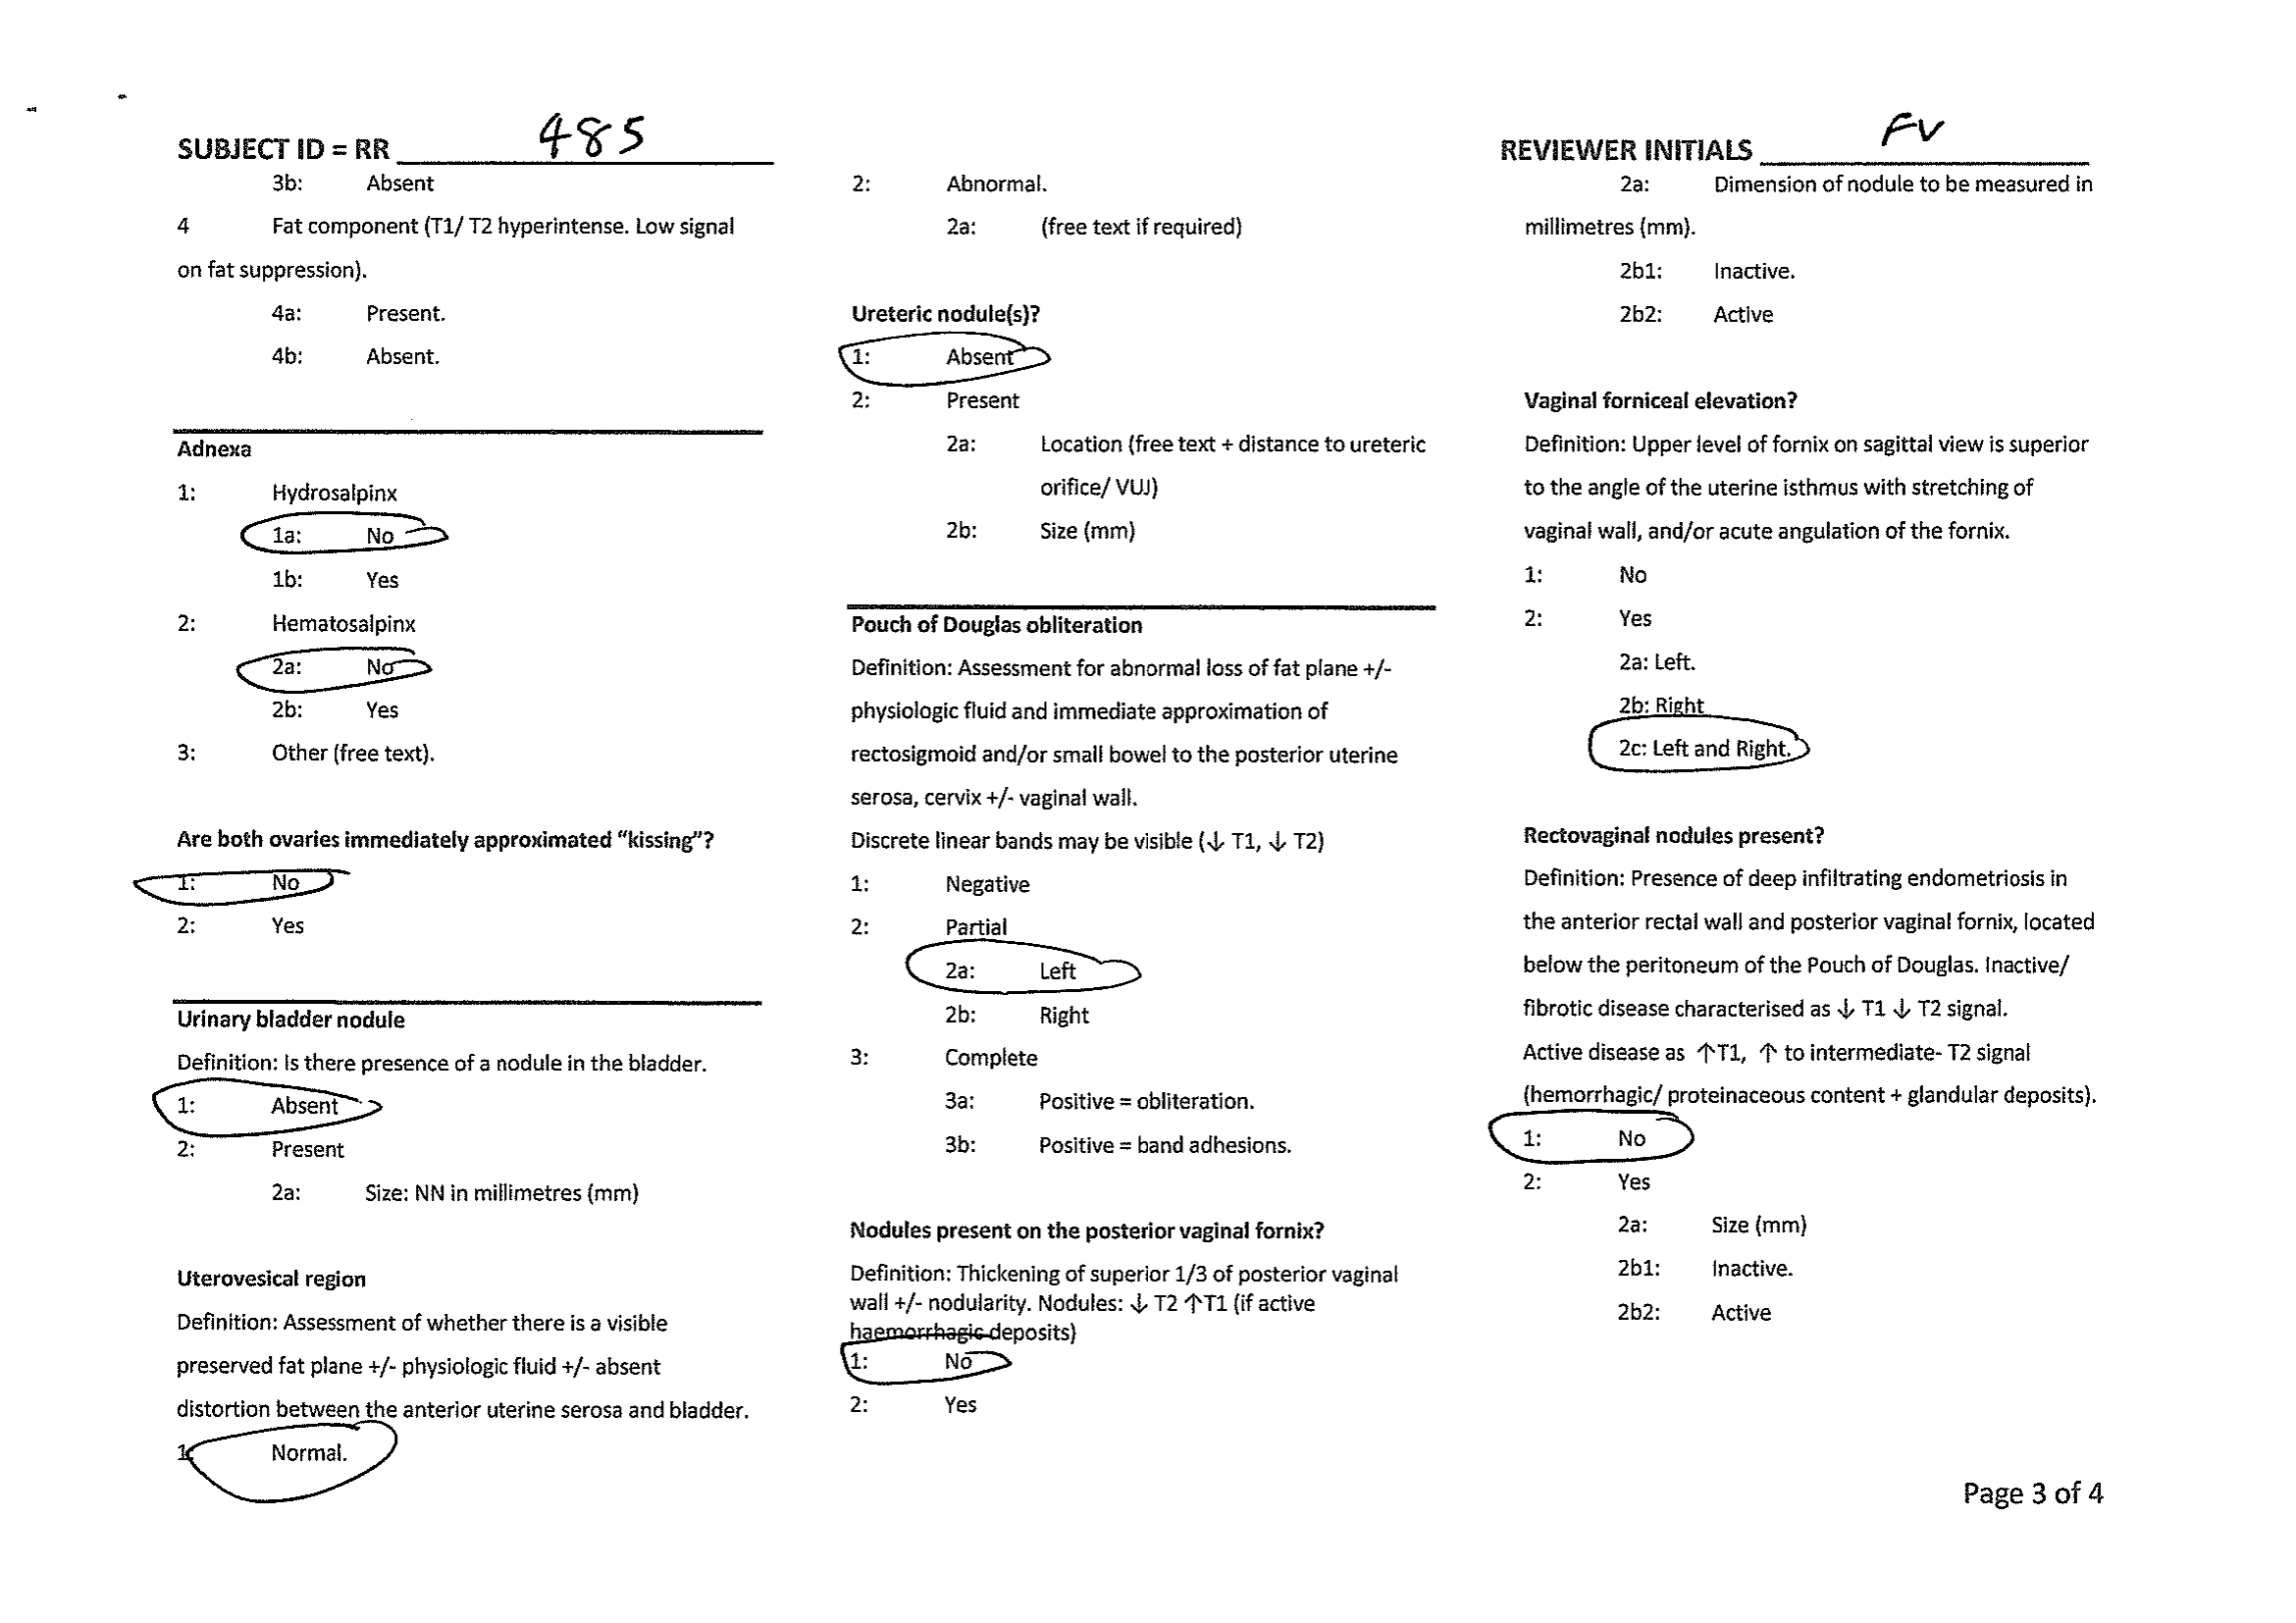 SUBJECT ID = RR 485
REVIEWER INITIALS FV
3b: Absent
4 Fat component (T1/ T2 hyperintense. Low signal
on fat suppression).
4a: Present.
4b: Absent.
Adnexa
1: Hydrosalpinx
1a: No
1b: Yes
2: Hematosalpinx
2a: No
2b: Yes
3: Other (free text).
Are both ovaries immediately approximated “kissing”?
1: No
2: Yes
Urinary bladder nodule
Definition: Is there presence of a nodule in the bladder.
1: Absent
2: Present
2a: Size: NN in millimetres (mm)
Uterovesical region
Definition: Assessment of whether there is a visible
preserved fat plane +/- physiologic fluid +/- absent
distortion between the anterior uterine serosa and bladder.
1: Normal.
2: Abnormal.
2a: (free text if required)
Ureteric nodule(s)?
1: Absent
2: Present
2a: Location (free text + distance to ureteric
orifice/ VUJ)
2b: Size (mm)
Pouch of Douglas obliteration
Definition: Assessment for abnormal loss of fat plane +/-
physiologic fluid and immediate approximation of
rectosigmoid and/or small bowel to the posterior uterine
serosa, cervix +/- vaginal wall.
Discrete linear bands may be visible (↓ T1, ↓ T2)
1: Negative
2: Partial
2a: Left
2b: Right
3: Complete
3a: Positive = obliteration.
3b: Positive = band adhesions.
Nodules present on the posterior vaginal fornix?
Definition: Thickening of superior 1/3 of posterior vaginal
wall +/- nodularity. Nodules: ↓ T2 ↑T1 (if active
haemorrhagic deposits)
1: No
2: Yes
2a: Dimension of nodule to be measured in
millimetres (mm).
2b1: Inactive.
2b2: Active
Vaginal forniceal elevation?
Definition: Upper level of fornix on sagittal view is superior
to the angle of the uterine isthmus with stretching of
vaginal wall, and/or acute angulation of the fornix.
1: No
2: Yes
2a: Left.
2b: Right
2c: Left and Right.
Rectovaginal nodules present?
Definition: Presence of deep infiltrating endometriosis in
the anterior rectal wall and posterior vaginal fornix, located
below the peritoneum of the Pouch of Douglas. Inactive/
fibrotic disease characterised as ↓ T1 ↓ T2 signal.
Active disease as ↑T1, ↑ to intermediate- T2 signal
(hemorrhagic/ proteinaceous content + glandular deposits).
1: No
2: Yes
2a: Size (mm)
2b1: Inactive.
2b2: Active
Page 3 of 4